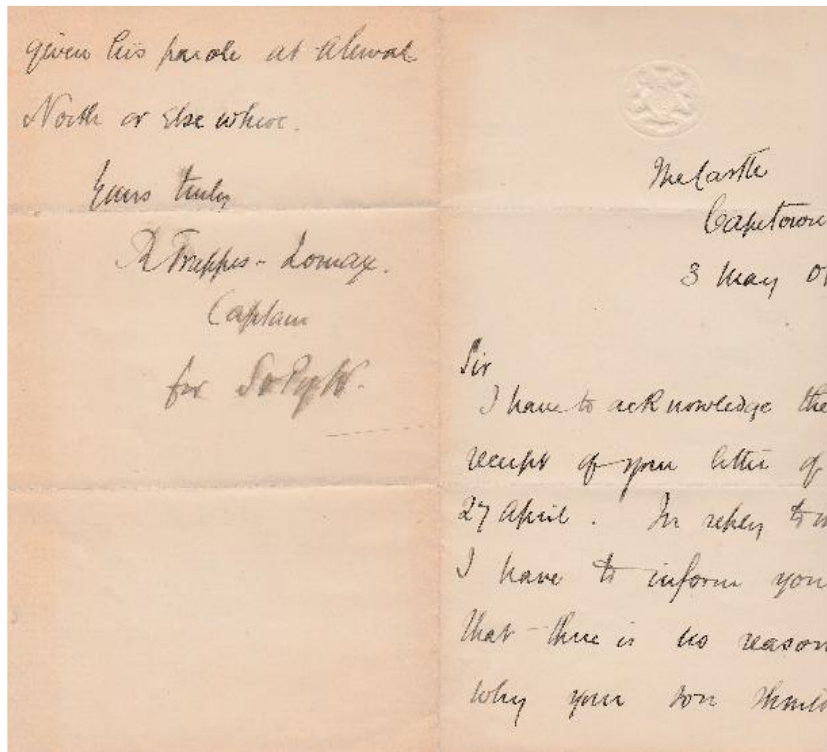 given his parole at Aliwal
North or Elsewhere.
Yours truly
R Trappes-Lomax.
Captain
for
The Castle
Capetown
3 May 01
Sir
I have to acknowledge the
receipt of your letter of
27 April. In reply to
I have to inform you
that there is no reason
why your son should